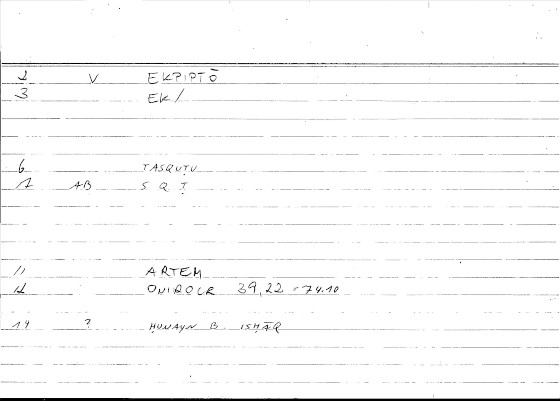 2 V EKPIPTŌ
3 EK/
6 TASQUṬU
7 AB S Q Ṭ
11 ARTEM
12 ONIROCR 39,22 = 74.10
14 ? ḤUNAYN B. ISḤĀQ